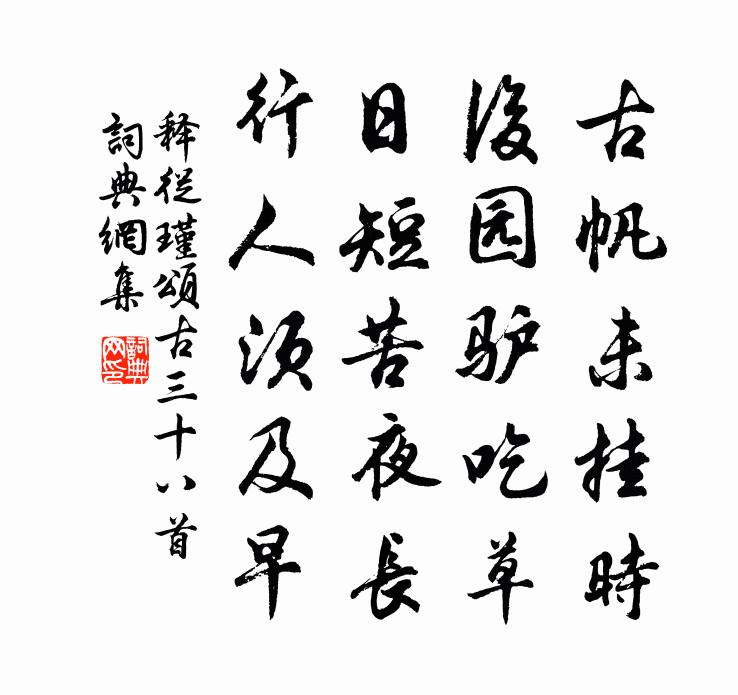 古帆未挂時
後园驴吃草
日短苦夜長
行人须及早
释從瑾頌古三十八首
詞典網集
詞典网印